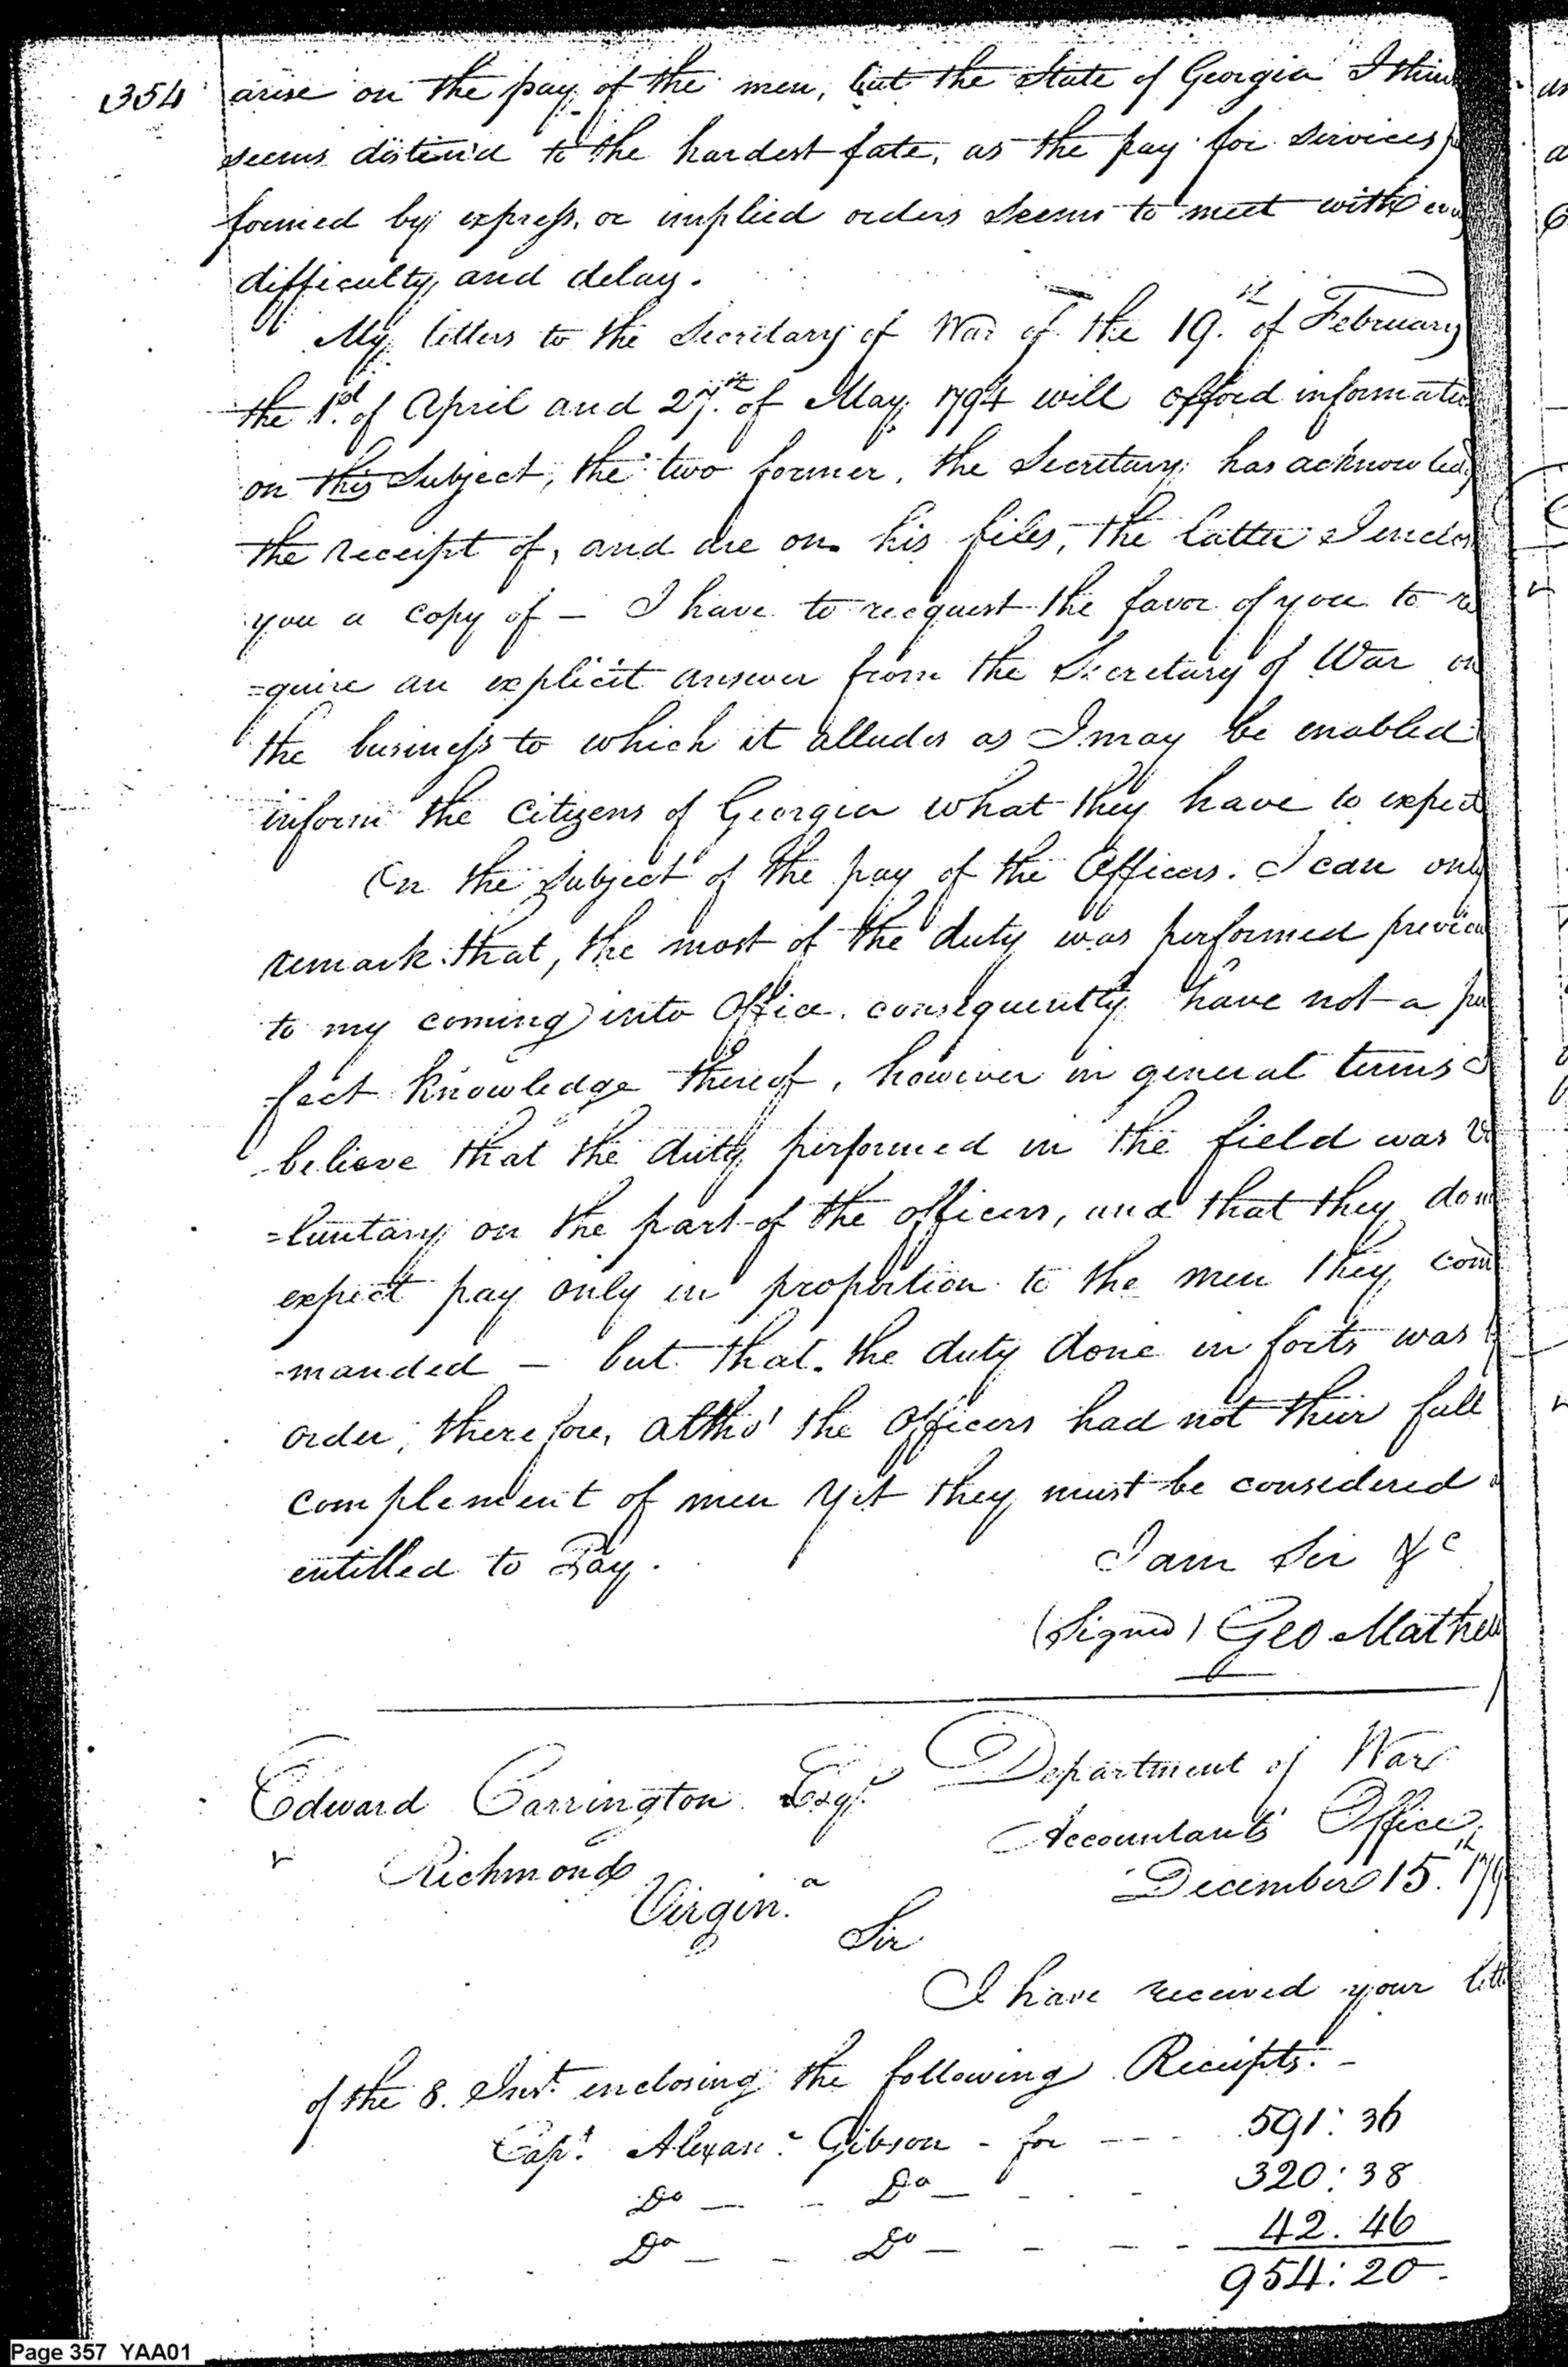 354
arise on the pay of the men, but the State of Georgia I thin
seems distin'd to the hardest fate, as the pay for services p
formed by express, or implied orders seems to meet with eve
difficulty, and delay.
My letters to the Secretary of War of the 19.th of February
the 1.st of April and 27.th of May, 1794 will afford informatio
on this Subject, the two former, the Secretary has acknowled
the receipt of, and are on his files, the latter I enclos
you a copy of — I have to recquest the favor of you to re
=quire an explicit answer from the Secretary of War on
the business to which it alludes as I may be enabled
inform the Citizens of Georgia what they have to expect
On the subject of the pay of the Officers. I can only
remark that, the most of the duty was performed previou
to my coming into Office, consequently have not a per
-fect knowledge thereof, however in general terms I
believe that the duty performed in the field was vo
=luntary on the part of the officers, and that they dont
expect pay only in proportion to the men they com
-manded — but that the duty done in forts was b
order, therefore, altho' the Officers had not their full
complement of men yet they must be considered a
entitled to Pay.
I am Sir &c
(Signed) Geo Mathew
Edward Carrington Esqr.
Richmond
Virgin.a
Department of War
Accountants Office
December 15.th 179
Sir
I have received your lett
of the 8. Inst. enclosing the following Receipts. —
Capt. Alexan.r Gibson - for --- 591: 36
Do — - Do — - - - 320: 38
Do — - Do — - - - 42. 46
954: 20
Page 357 YAA01